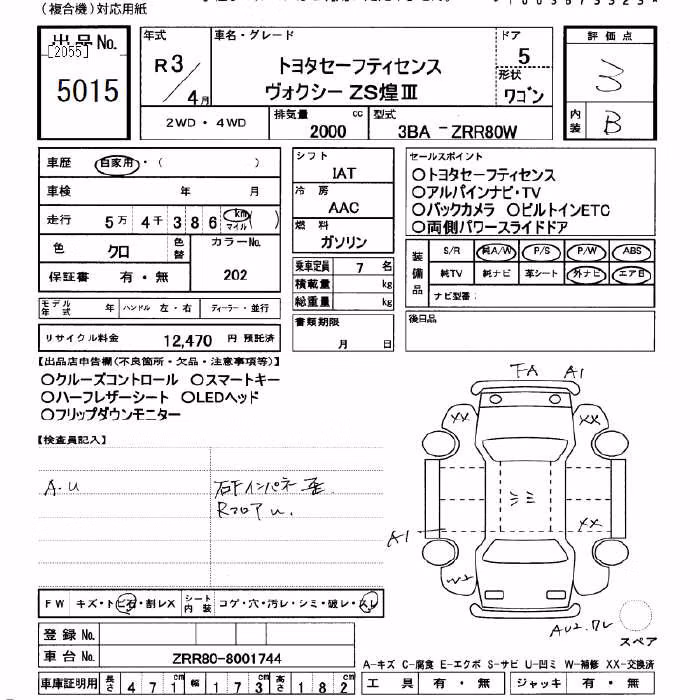 (複合機)対応用紙
出品No. [2055] 5015
年式 R3/4月
車名・グレード トヨタセーフティセンス
ヴォクシー ZS煌Ⅲ
ドア 5
形状 ワゴン
評価点 3
内装 B
2WD・4WD
排気量 2000 cc
型式 3BA -ZRR80W
車歴 自家用・( )
車検 年 月
走行 5万 4千 3 8 6 km マイル ( )
色 クロ 色替 カラーNo. 202
保証書 有・無
モデル年式 年 ハンドル 左・右 ディーラー・並行
リサイクル料金 12,470 円 預託済
シフト IAT
冷房 AAC
燃料 ガソリン
乗車定員 7 名
積載量 kg
総重量 kg
書類期限 月 日
セールスポイント
○トヨタセーフティセンス
○アルパインナビ・TV
○バックカメラ ○ビルトインETC
○両側パワースライドドア
装備品 S/R 純A/W P/S P/W ABS
純TV 純ナビ 革シート 外ナビ エアB
ナビ型番:
後日品
【出品店申告欄(不良箇所・欠品・注意事項等)】
○クルーズコントロール ○スマートキー
○ハーフレザーシート ○LEDヘッド
○フリップダウンモニター
【検査員記入】
A.U
インパネ
RフロアU.
A1
XX XX
ミミ
XX
A1
W2
AU2.
スペア
FW キズ・トビ石・割レX シート内装 コゲ・穴・汚レ・シミ・破レ・スレ
登録No.
車台No. ZRR80-8001744
A-キズ C-腐食 E-エクボ S-サビ U-凹ミ W-補修 XX-交換済
車庫証明用 長さ 471cm 幅 173cm 高さ 182cm
工具 有・無 ジャッキ 有・無